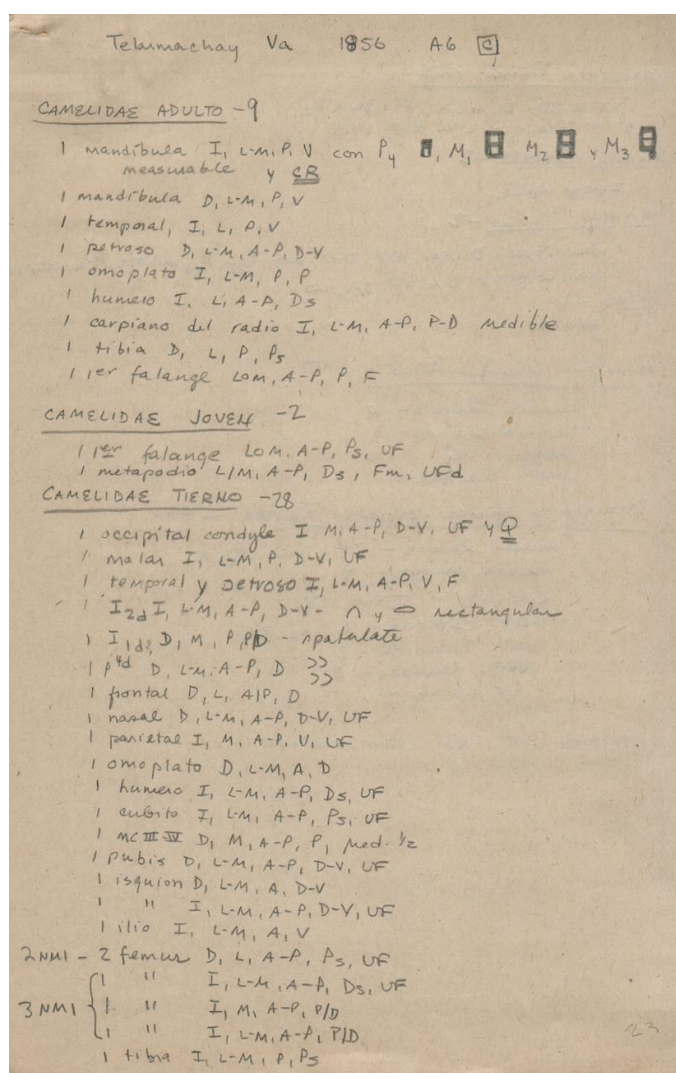 Telarmachay Va 1856 A6 C
CAMELIDAE ADULTO -9
1 mandíbula I, L-M, P, V con P4 , M1 M2 y M3
measurable y CR
1 mandíbula D, L-M, P, V
1 temporal, I, L, P, V
1 petroso D, L-M, A-P, D-V
1 omoplato I, L-M, P, P
1 humero I, L, A-P, Ds
1 carpiano del radio I, L-M, A-P, P-D medible
1 tibia D, L, P, Ps
1 1er falange LOM, A-P, P, F
CAMELIDAE JOVEN -2
1 1er falange LOM, A-P, Ps, UF
1 metapodio L/M, A-P, Ds, Fm, UFd
CAMELIDAE TIERNO -28
1 occipital condyle I M, A-P, D-V, UF y Q
1 malar I, L-M, P, D-V, UF
1 temporal y petroso I, L-M, A-P, V, F
1 I2d I, L-M, A-P, D-V - ∩ y ⊂⊃ rectangular
1 I1d? D, M, P, P/D - spatulate
1 P4d D, L-M, A-P, D >> >>
1 frontal D, L, A/P, D
1 nasal D, L-M, A-P, D-V, UF
1 parietal I, M, A-P, V, UF
1 omoplato D, L-M, A, D
1 humero I, L-M, A-P, Ds, UF
1 cubito I, L-M, A-P, Ps, UF
1 MC III-IV D, M, A-P, P, med. 1/2
1 pubis D, L-M, A-P, D-V, UF
1 isquion D, L-M, A, D-V
1 " I, L-M, A-P, D-V, UF
1 ilio I, L-M, A, V
2 NMI - 2 femur D, L, A-P, Ps, UF
1 " I, L-M, A-P, Ds, UF
3 NMI { 1 " I, M, A-P, P/D
1 " I, L-M, A-P, P/D
1 tibia I, L-M, P, Ps
23